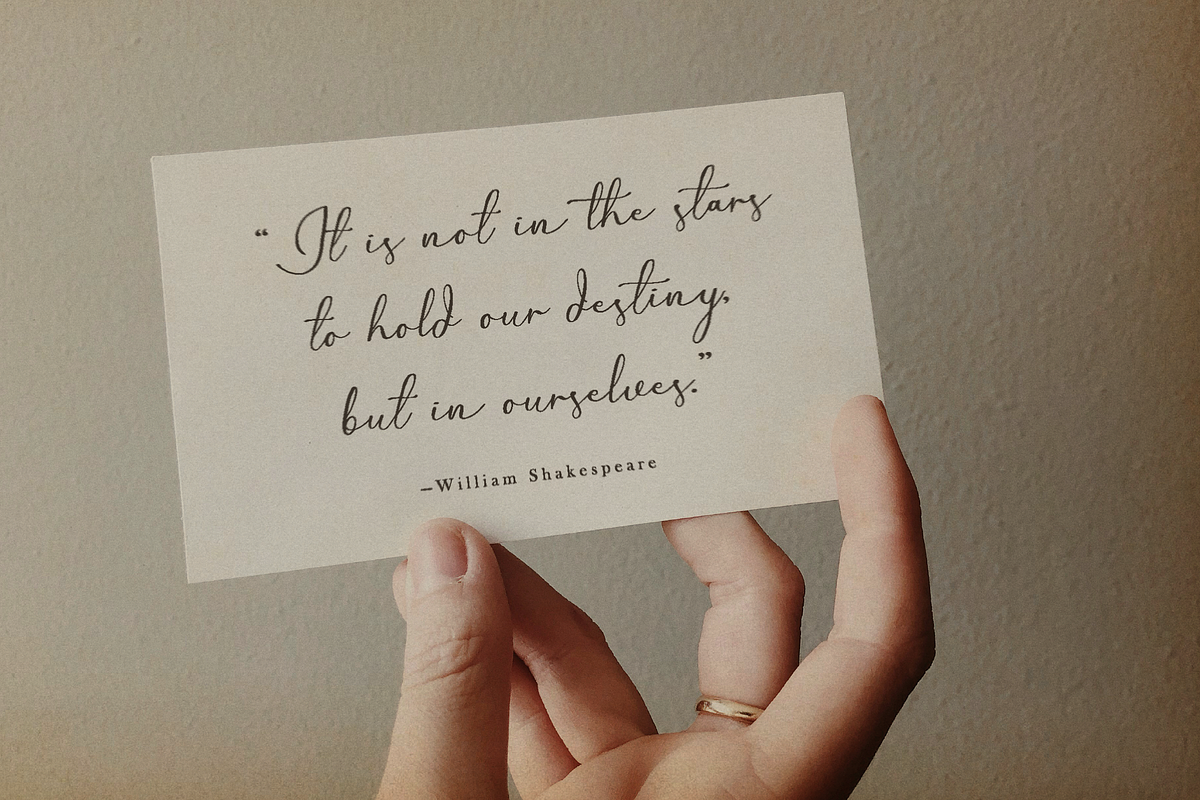 “ It is not in the stars
to hold our destiny,
but in ourselves.”
–William Shakespeare